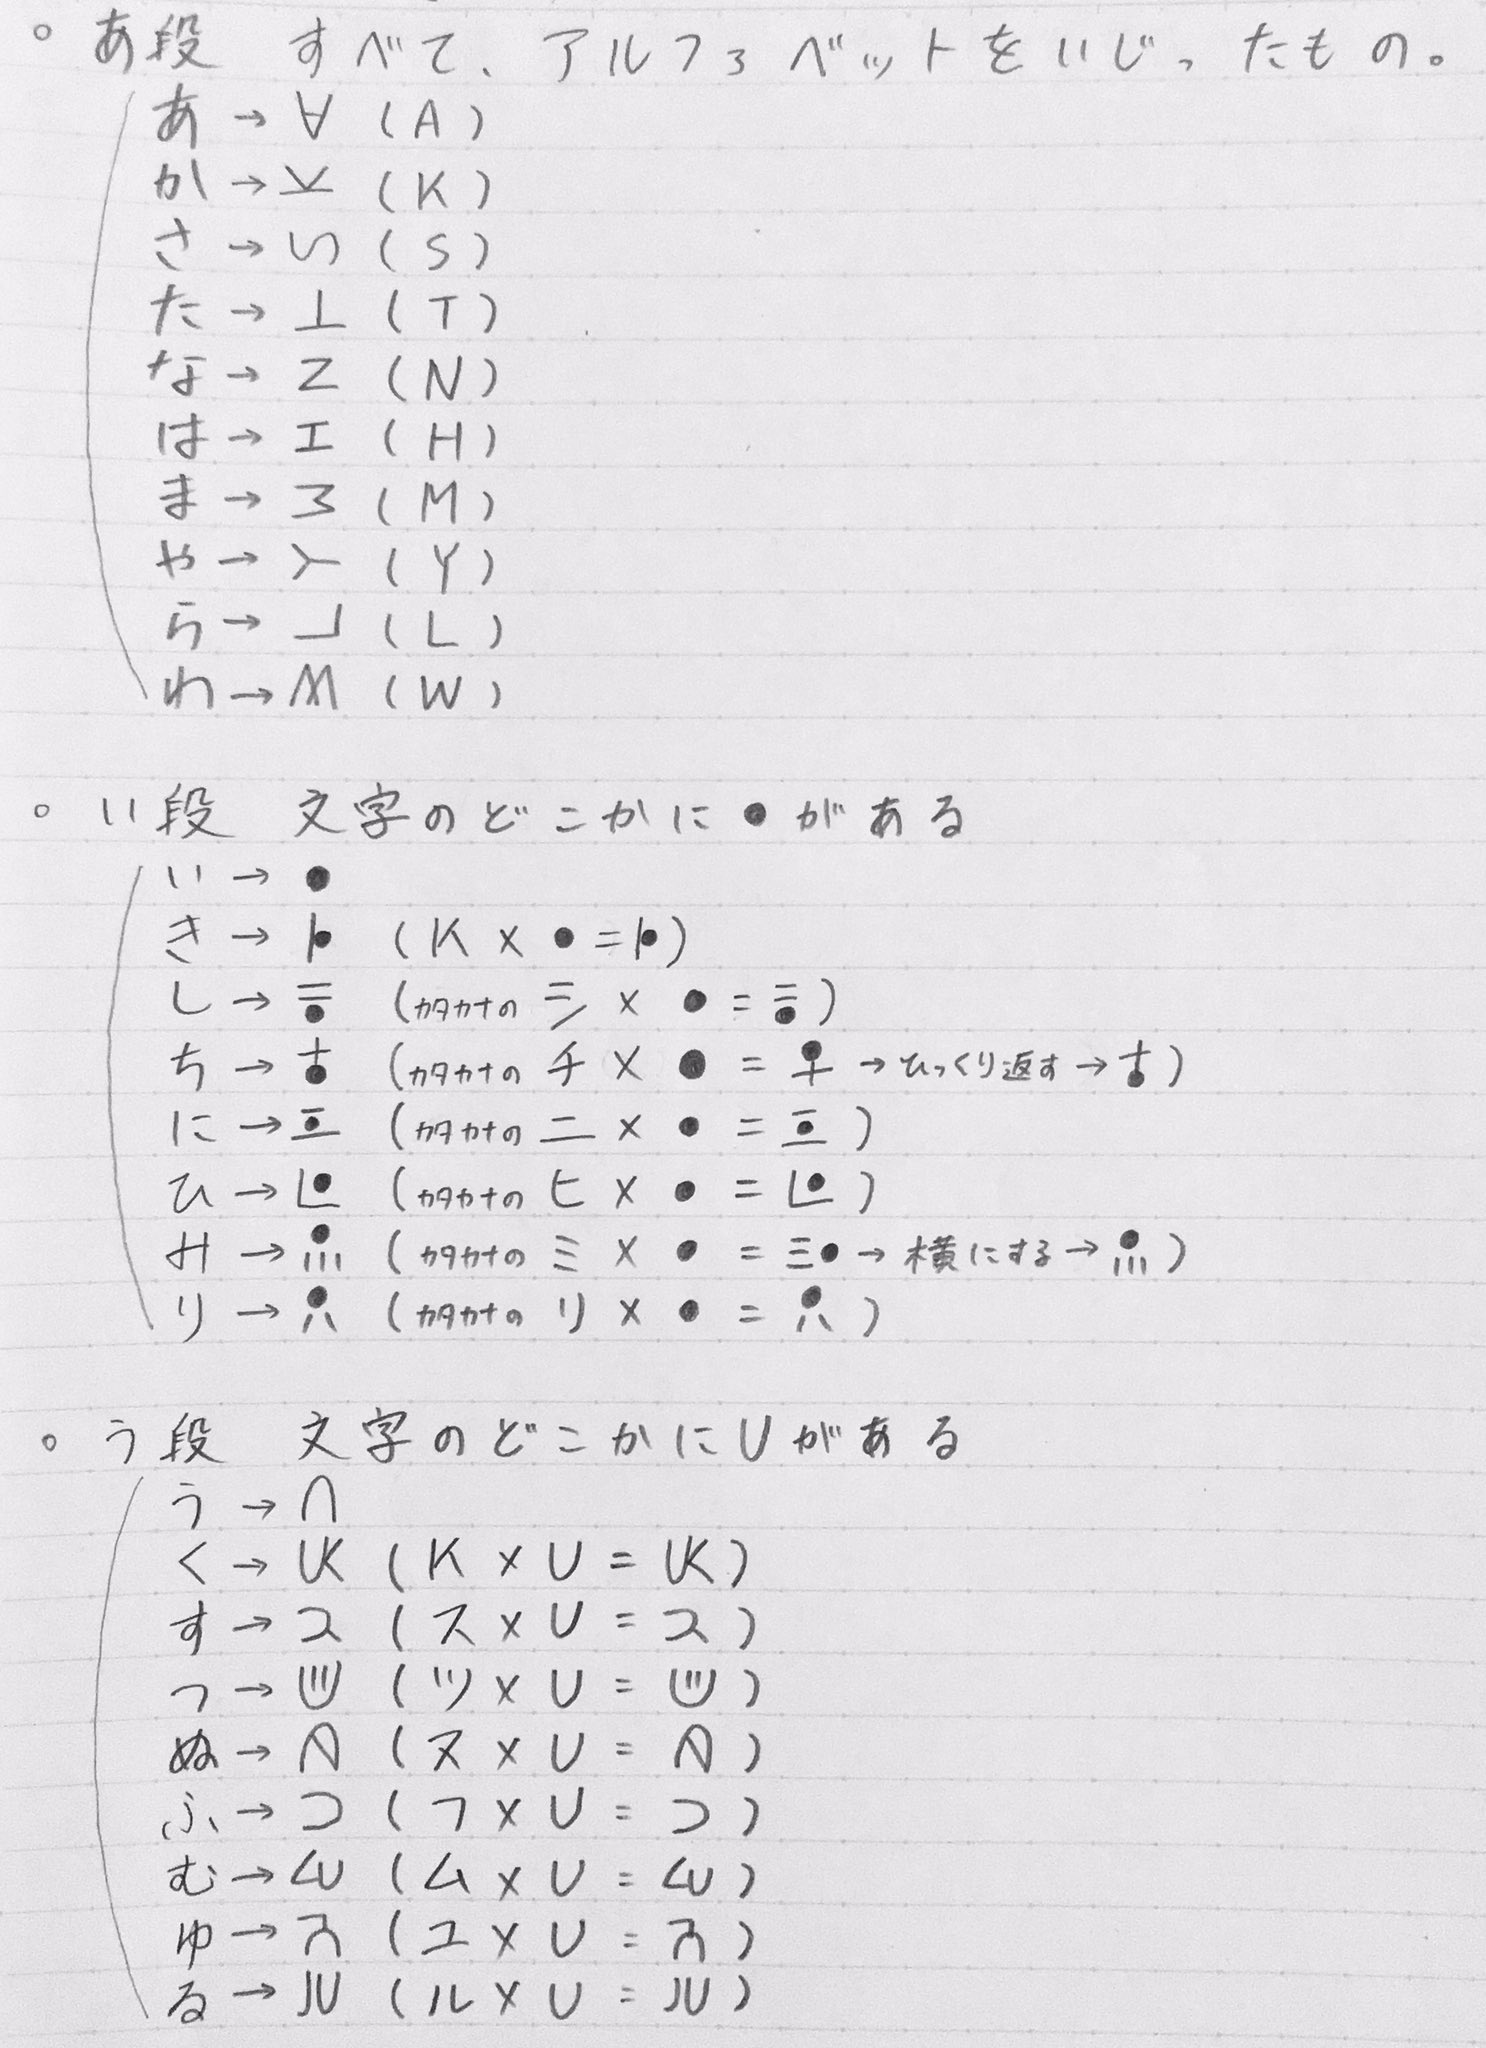 。あ段 すべて、アルファベットをいじったもの。
あ→∀(A)
か→(K)
さ→(S)
た→⊥(T)
な→Z(N)
は→エ(H)
ま→(M)
や→(Y)
ら→(L)
わ→(W)
。い段 文字のどこかに●がある
い→●
き→(K×●=)
し→(カタカナのシ×●=)
ち→(カタカナのチ×●=→ひっくり返す→)
に→(カタカナのニ×●=)
ひ→(カタカナのヒ×●=)
み→(カタカナのミ×●=三●→横にする→)
り→(カタカナのリ×●=)
。う段 文字のどこかにUがある
う→∩
く→UK(K×U=UK)
す→(ス×U=)
つ→(ツ×U=)
ぬ→(ヌ×U=)
ふ→⊃(フ×U=⊃)
む→(ム×U=)
ゆ→(ユ×U=)
る→(ル×U=)